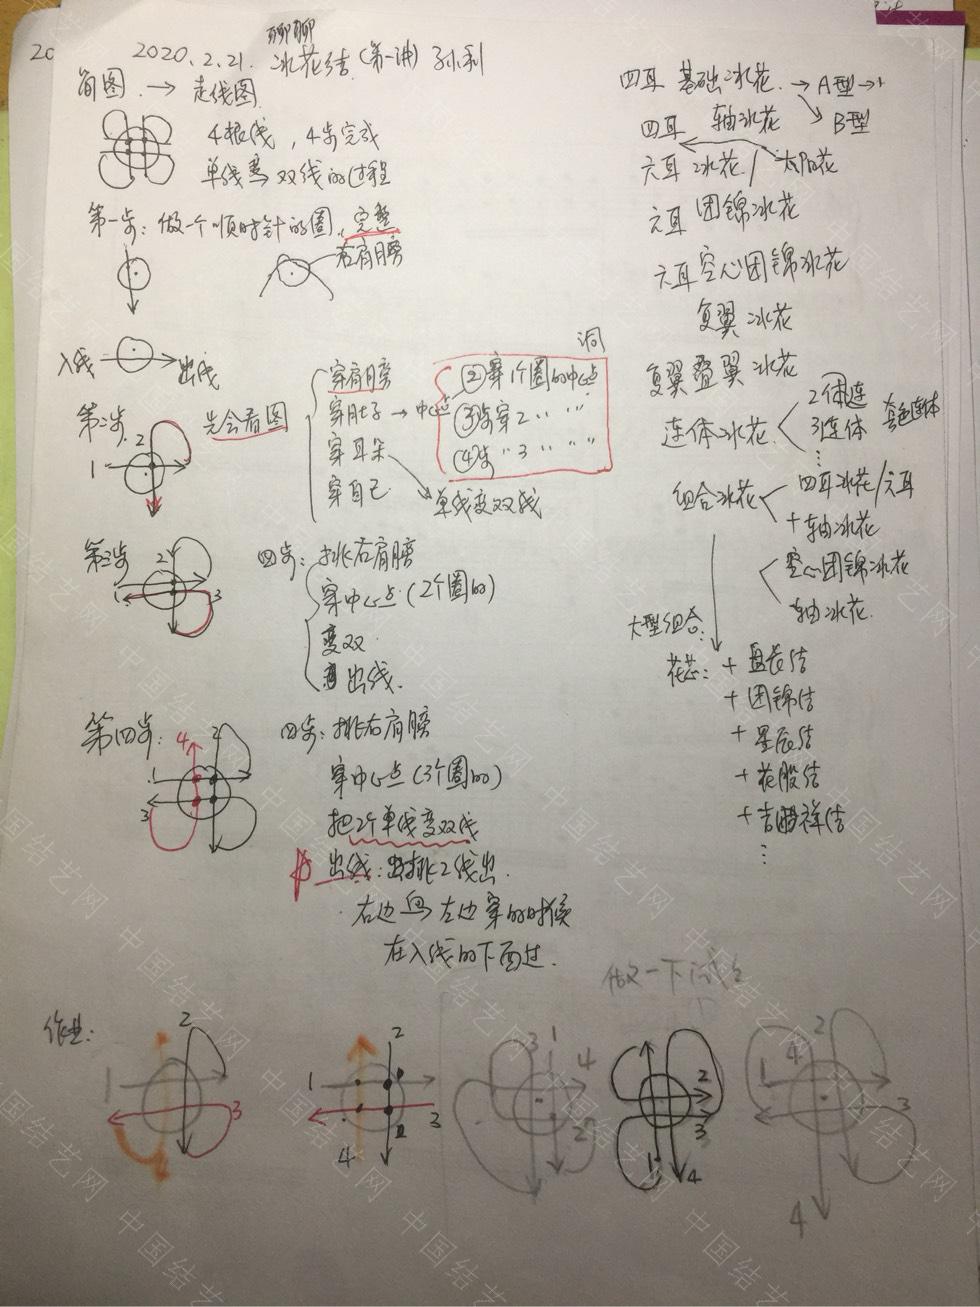 聊聊
2020.2.21. 冰花结(第一讲) 孙利
简图 → 走线图
4根线,4步完成
单线变双线的过程
第一步:做一个顺时针的圈,完整
右肩膀
入线
出线
第二步
先会看图
1
2
穿肩膀
穿肚子→中心点
穿耳朵
穿自己
单线变双线
洞
②穿1个圈的中心点
③步穿2 〃 〃
④步 〃 3 〃 〃 〃
第三步
1
2
3
四步:挑右肩膀
穿中心点(2个圈的)
变双
出线.
第四步:
1
2
3
4
四步:挑右肩膀
穿中心点(3个圈的)
把2个单线变双线
出线:挑2线出.
右边向左边穿的时候
在入线的下面过.
四耳 基础冰花 → A型 →
B型
四耳 轴冰花
六耳 冰花/太阳花
六耳 团锦冰花
六耳空心团锦冰花
复翼冰花
复翼叠翼冰花
连体冰花
2体连
3连体
套色连体
⋮
组合冰花
四耳冰花/六耳
+轴冰花
空心团锦冰花
轴冰花.
大型组合:
花芯:+盘长结
+团锦结
+星辰结
+花股结
+吉祥结
⋮
做一下试试
作业:
1
2
3
1
2
3
4
1
2
3
4
1
2
3
4
1
2
3
4
4
中国结艺网